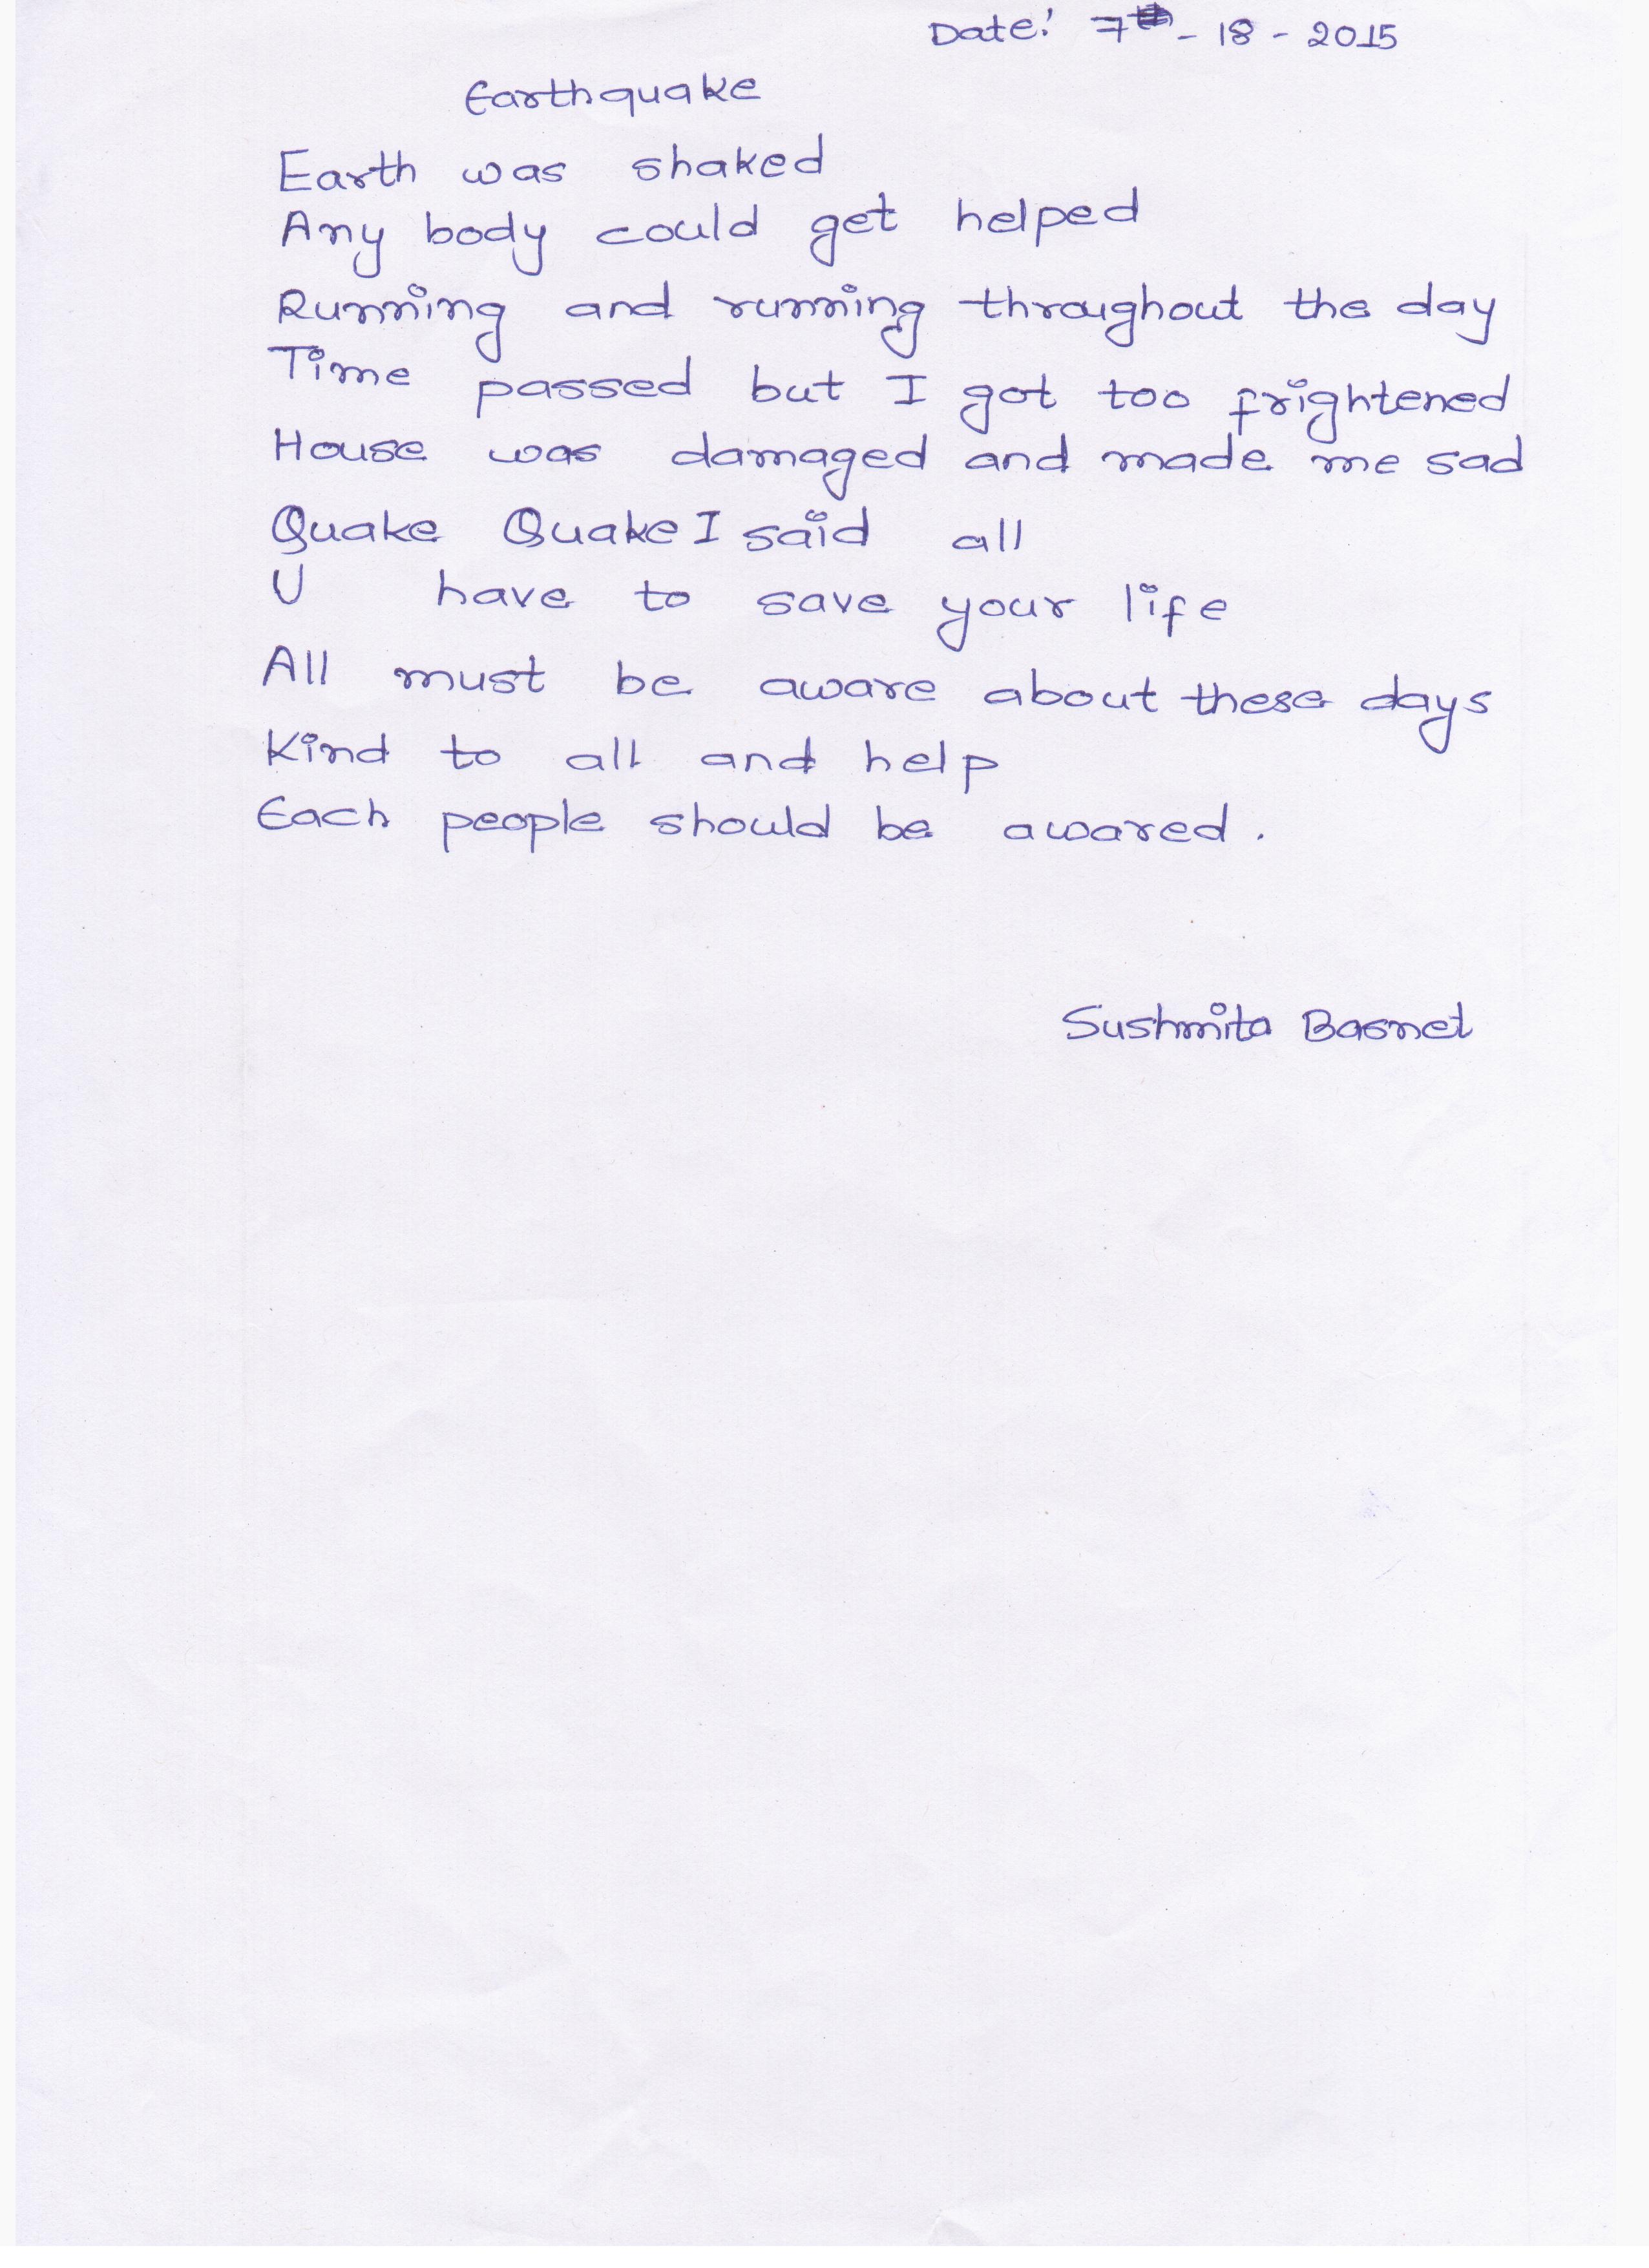 Date: 7 - 18 - 2015
Earthquake
Earth was shaked
Any body could get helped
Running and running throughout the day
Time passed but I got too frightened
House was damaged and made me sad
Quake Quake I said all
U have to save your life
All must be aware about these days
Kind to all and help
Each people should be awared.
Sushmita Basnet